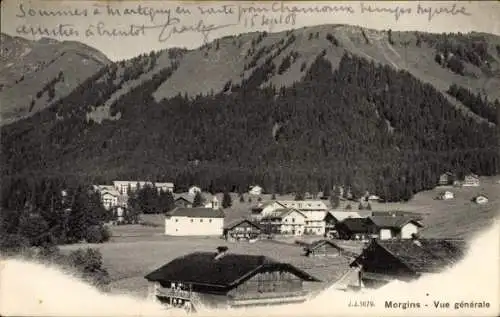 Sommes à Martigny en route pour Chamonix temps superbe
amitiés à bientôt Charley 15 Sept 08
J.J. 5079. Morgins - Vue générale